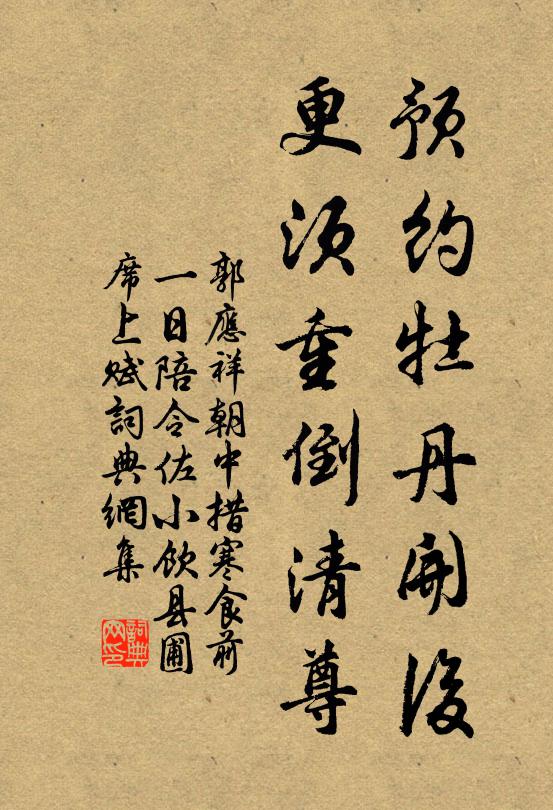 預約牡丹開後
更須重倒清尊
郭應祥朝中措寒食前
一日陪令佐小飲县圃
席上賦詞典網集
詞典
网印